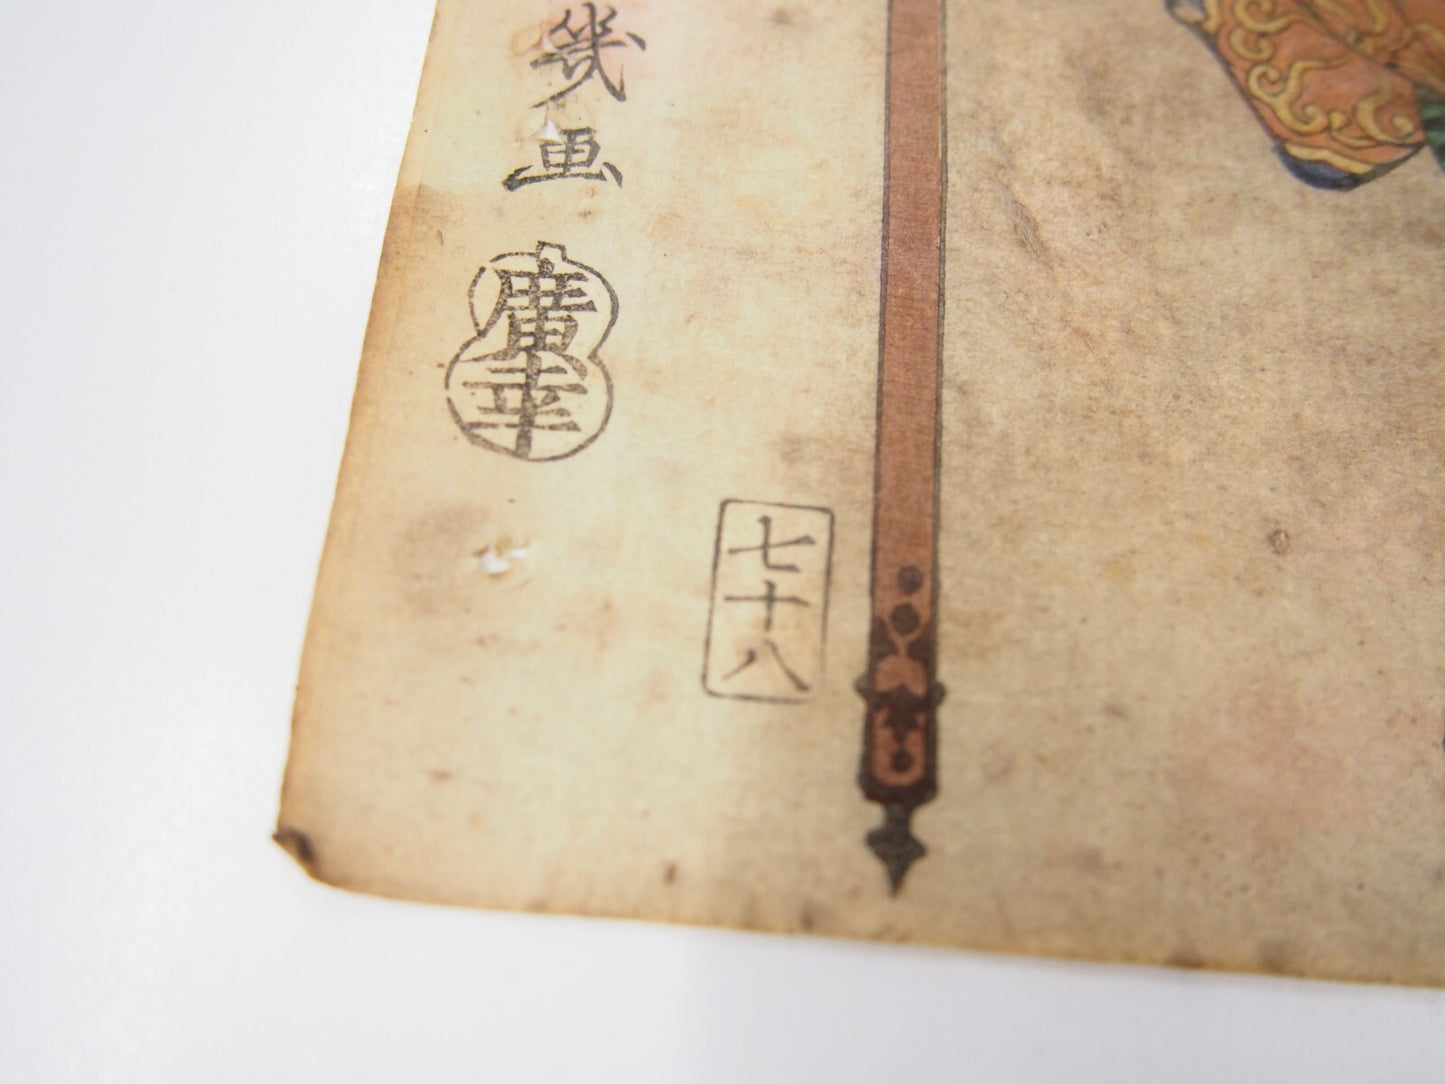 幾画
廣幸
七十八